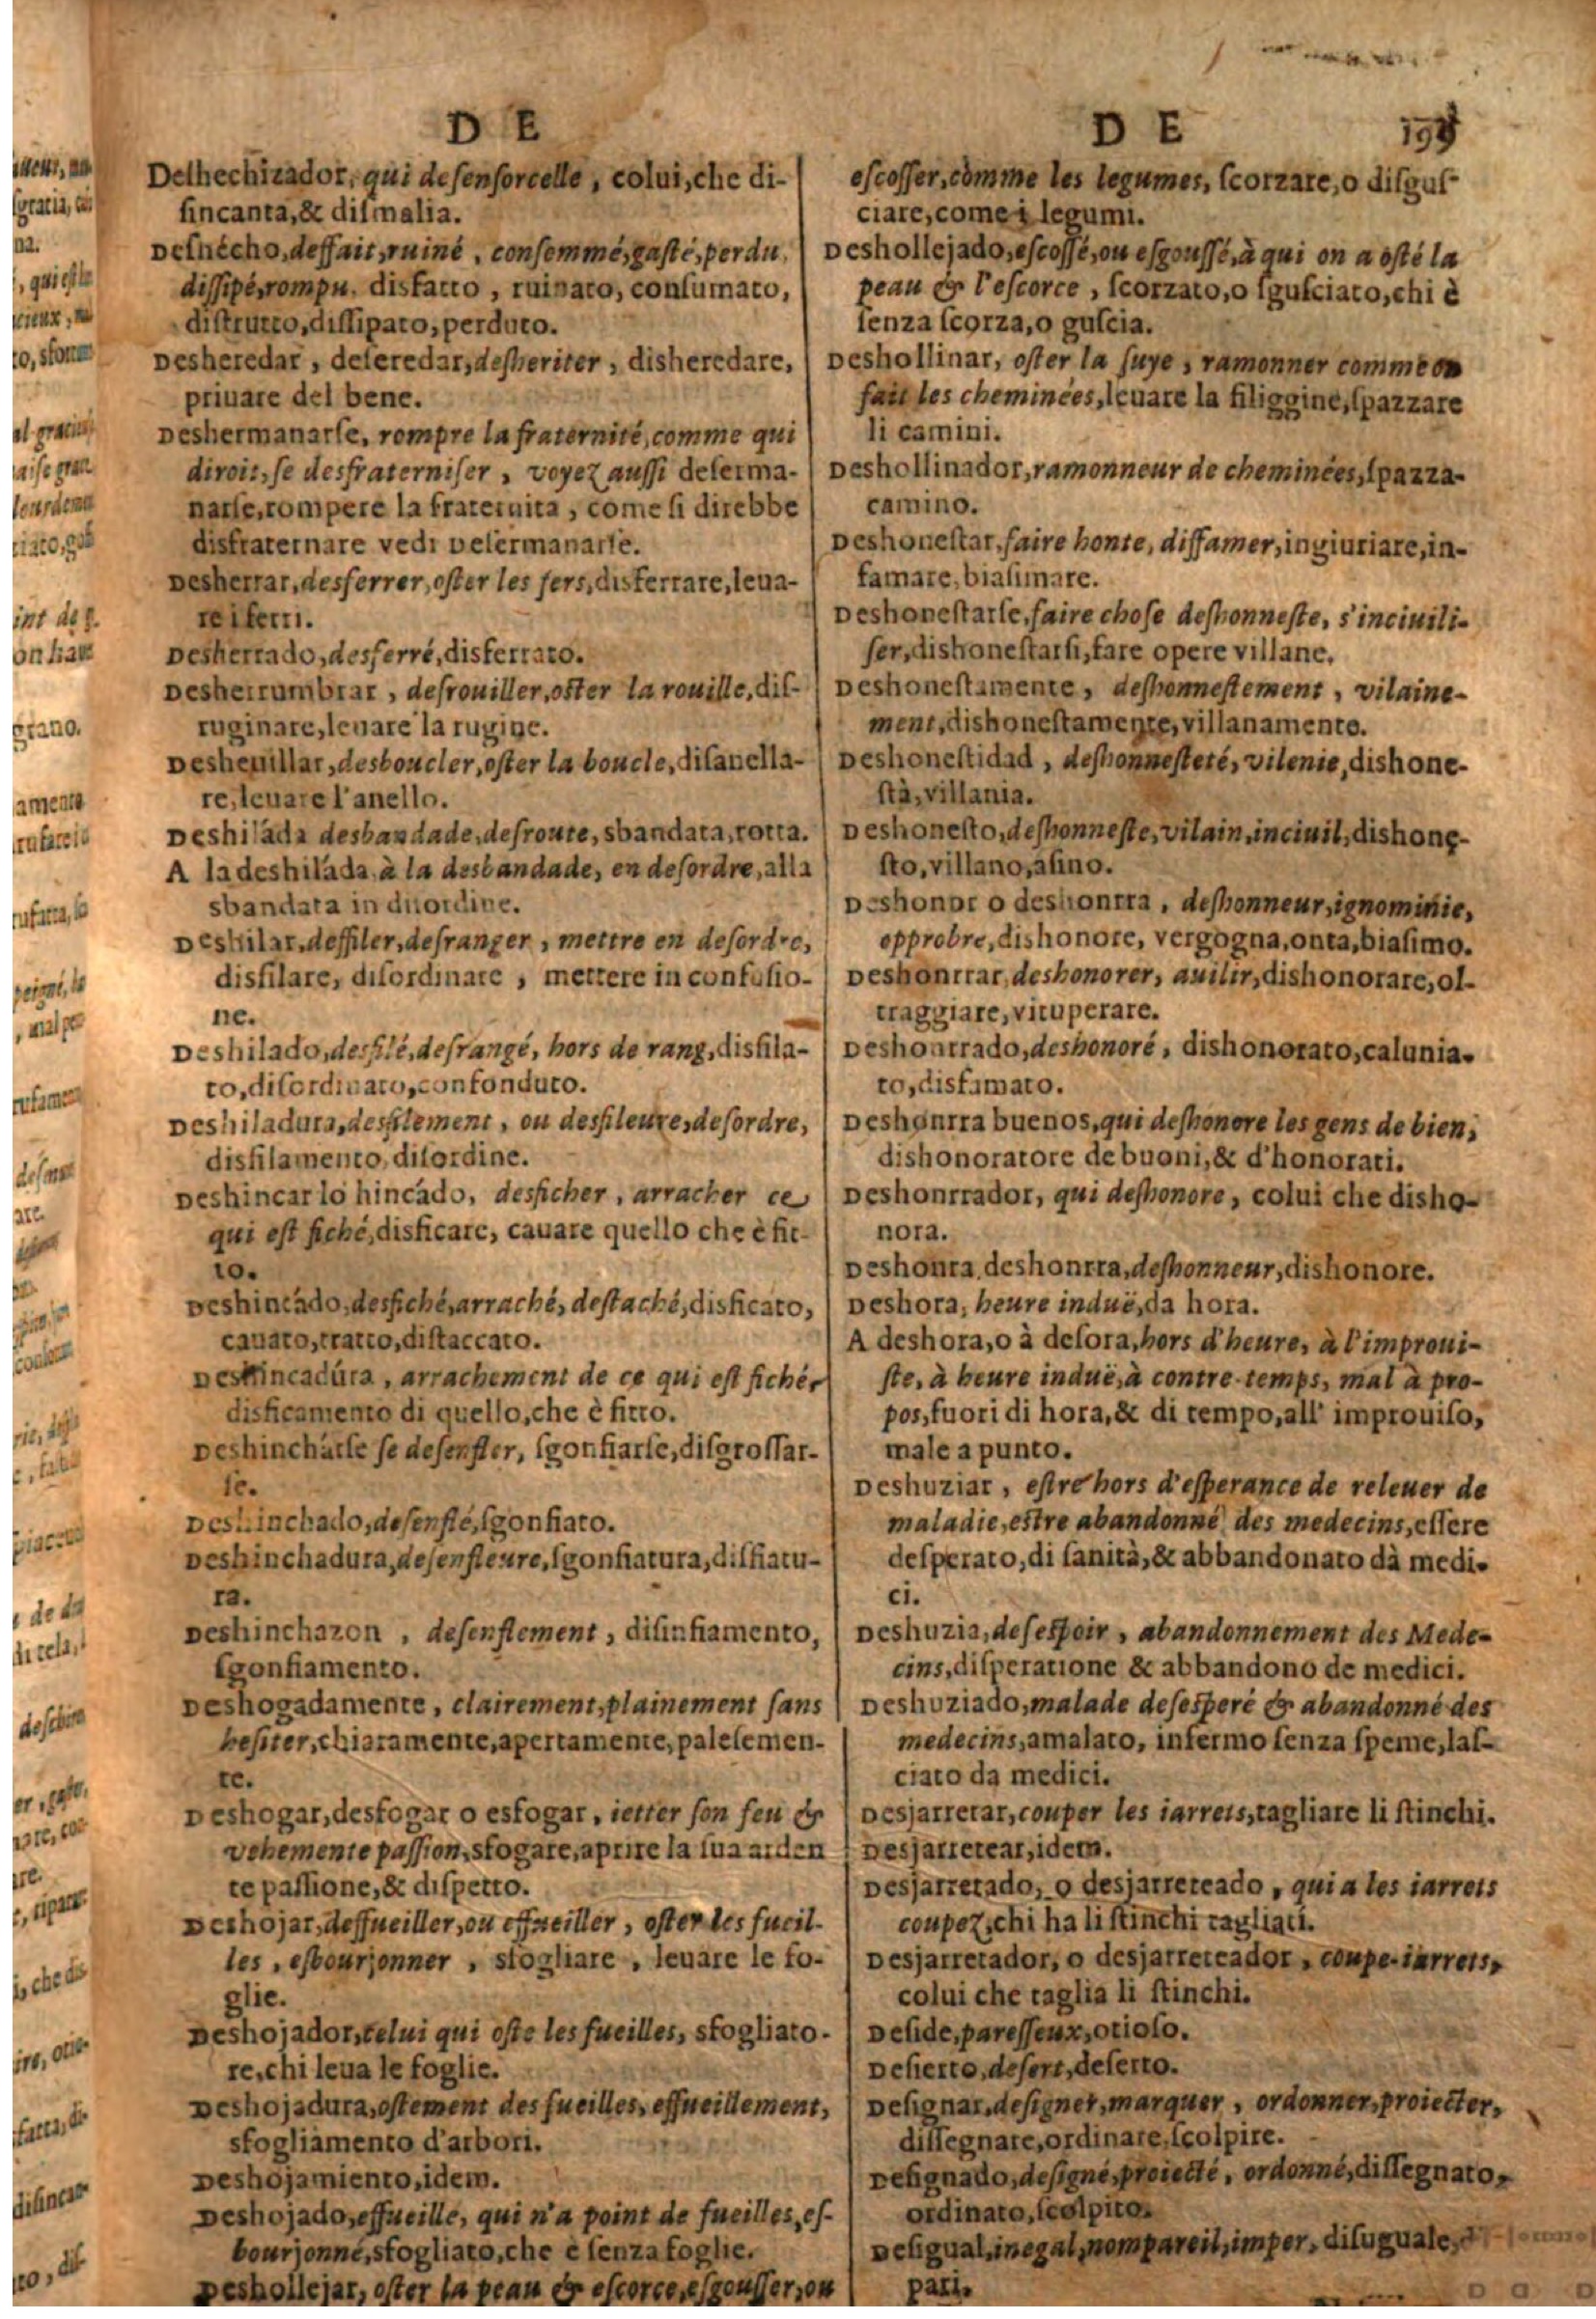 D E
Deshechizador, qui desensorcelle, colui, che di-
sincanta, & dismalia.
Deshécho, deffait, ruiné, consommé, gasté, perdu,
dissipé, rompu, disfatto, ruinato, consumato,
distrutto, dissipato, perduto.
Desheredar, deseredar, desheriter, disheredare,
priuare del bene.
Deshermanarse, rompre la fraternité, comme qui
diroit, se desfraterniser, voyez aussi deserma-
narse, rompere la fraternita, come si direbbe
disfraternare vedi desermanarse.
Desherrar, desferrer, oster les fers, disferrare, leua-
re i ferri.
Desherrado, desferré, disferrato.
Desherrumbrar, desrouiller, oster la rouille, dis-
ruginare, leuare la rugine.
Desheuillar, desboucler, oster la boucle, disanella-
re, leuare l'anello.
Deshiláda desbandade, desroute, sbandata, rotta.
A la deshiláda, à la desbandade, en desordre, alla
sbandata in disordine.
Deshilar, deffiler, desranger, mettre en desordre,
disfilare, disordinare, mettere in confusio-
ne.
Deshilado, desfilé, desrangé, hors de rang, disfila-
to, disordinato, confonduto.
Deshiladura, desfilement, ou desfileure, desordre,
disfilamento, disordine.
Deshincar lo hincádo, desficher, arracher ce
qui est fiché, disficare, cauare quello che è fit-
to.
Deshincádo, desfiché, arraché, destaché, disficato,
cauato, tratto, distaccato.
Deshincadúra, arrachement de ce qui est fiché,
disficamento di quello, che è fitto.
Deshincharse se desenfler, sgonfiarse, disgrossar-
se.
Deshinchado, desenflé, sgonfiato.
Deshinchadura, desenfleure, sgonfiatura, disfiatu-
ra.
Deshinchazon, desenflement, disinfiamento,
sgonfiamento.
Deshogadamente, clairement, plainement sans
hesiter, chiaramente, apertamente, palesemen-
te.
Deshogar, desfogar o esfogar, ietter son feu &
vehemente passion, sfogare, aprire la sua arden
te passione, & dispetto.
Deshojar, deffueiller, ou effueiller, oster les fueil-
les, esbourjonner, sfogliare, leuare le fo-
glie.
Deshojador, celui qui oste les fueilles, sfogliato-
re, chi leua le foglie.
Deshojadura, ostement des fueilles, effueillement,
sfogliamento d'arbori.
Deshojamiento, idem.
Deshojado, effueille, qui n'a point de fueilles, es-
bourjonné, sfogliato, che è senza foglie.
Deshollejar, oster la peau & escorce, esgousser, ou
D E
escosser, comme les legumes, scorzare, o disgus-
ciare, come i legumi.
Deshollejado, escossé, ou esgoussé, à qui on a osté la
peau & l'escorce, scorzato, o sgusciato, chi è
senza scorza, o guscia.
Deshollinar, oster la suye, ramonner comme on
fait les cheminées, leuare la filiggine, spazzare
li camini.
Deshollinador, ramonneur de cheminées, spazza-
camino.
Deshonestar, faire honte, diffamer, ingiuriare, in-
famare, biasimare.
Deshonestarse, faire chose deshonneste, s'inciuili-
ser, dishonestarsi, fare opere villane.
Deshonestamente, deshonnestement, vilaine-
ment, dishonestamente, villanamente.
Deshonestidad, deshonnesteté, vilenie, dishone-
stà, villania.
Deshonesto, deshonneste, vilain, inciuil, dishone-
sto, villano, asino.
Deshonor o deshonrra, deshonneur, ignominie,
opprobre, dishonore, vergogna, onta, biasimo.
Deshonrrar, deshonorer, auilir, dishonorare, ol-
traggiare, vituperare.
Deshonrrado, deshonoré, dishonorato, calunia-
to, disfamato.
Deshonrra buenos, qui deshonore les gens de bien,
dishonoratore de buoni, & d'honorati.
Deshonrrador, qui deshonore, colui che disho-
nora.
Deshonra, deshonrra, deshonneur, dishonore.
Deshora, heure induë, da hora.
A deshora, o à desora, hors d'heure, à l'improui-
ste, à heure induë, à contre-temps, mal à pro-
pos, fuori di hora, & di tempo, all' improuiso,
male a punto.
Deshuziar, estre hors d'esperance de releuer de
maladie, estre abandonné des medecins, essere
desperato, di sanità, & abbandonato dà medi-
ci.
Deshuzia, desespoir, abandonnement des Mede-
cins, disperatione & abbandono de medici.
Deshuziado, malade desesperé & abandonné des
medecins, amalato, infermo senza speme, las-
ciato da medici.
Desjarretar, couper les iarrets, tagliare li stinchi.
Desjarretear, idem.
Desjarretado, o desjarreteado, qui a les iarrets
coupez, chi ha li stinchi tagliati.
Desjarretador, o desjarreteador, coupe-iarrets,
colui che taglia li stinchi.
Deside, paresseux, otioso.
Desierto, desert, deserto.
Designar, designer, marquer, ordonner, proiecter,
dissegnare, ordinare, scolpire.
Designado, designé, proiecté, ordonné, dissegnato,
ordinato, scolpito.
Desigual, inegal, nompareil, imper, disuguale,
pari.